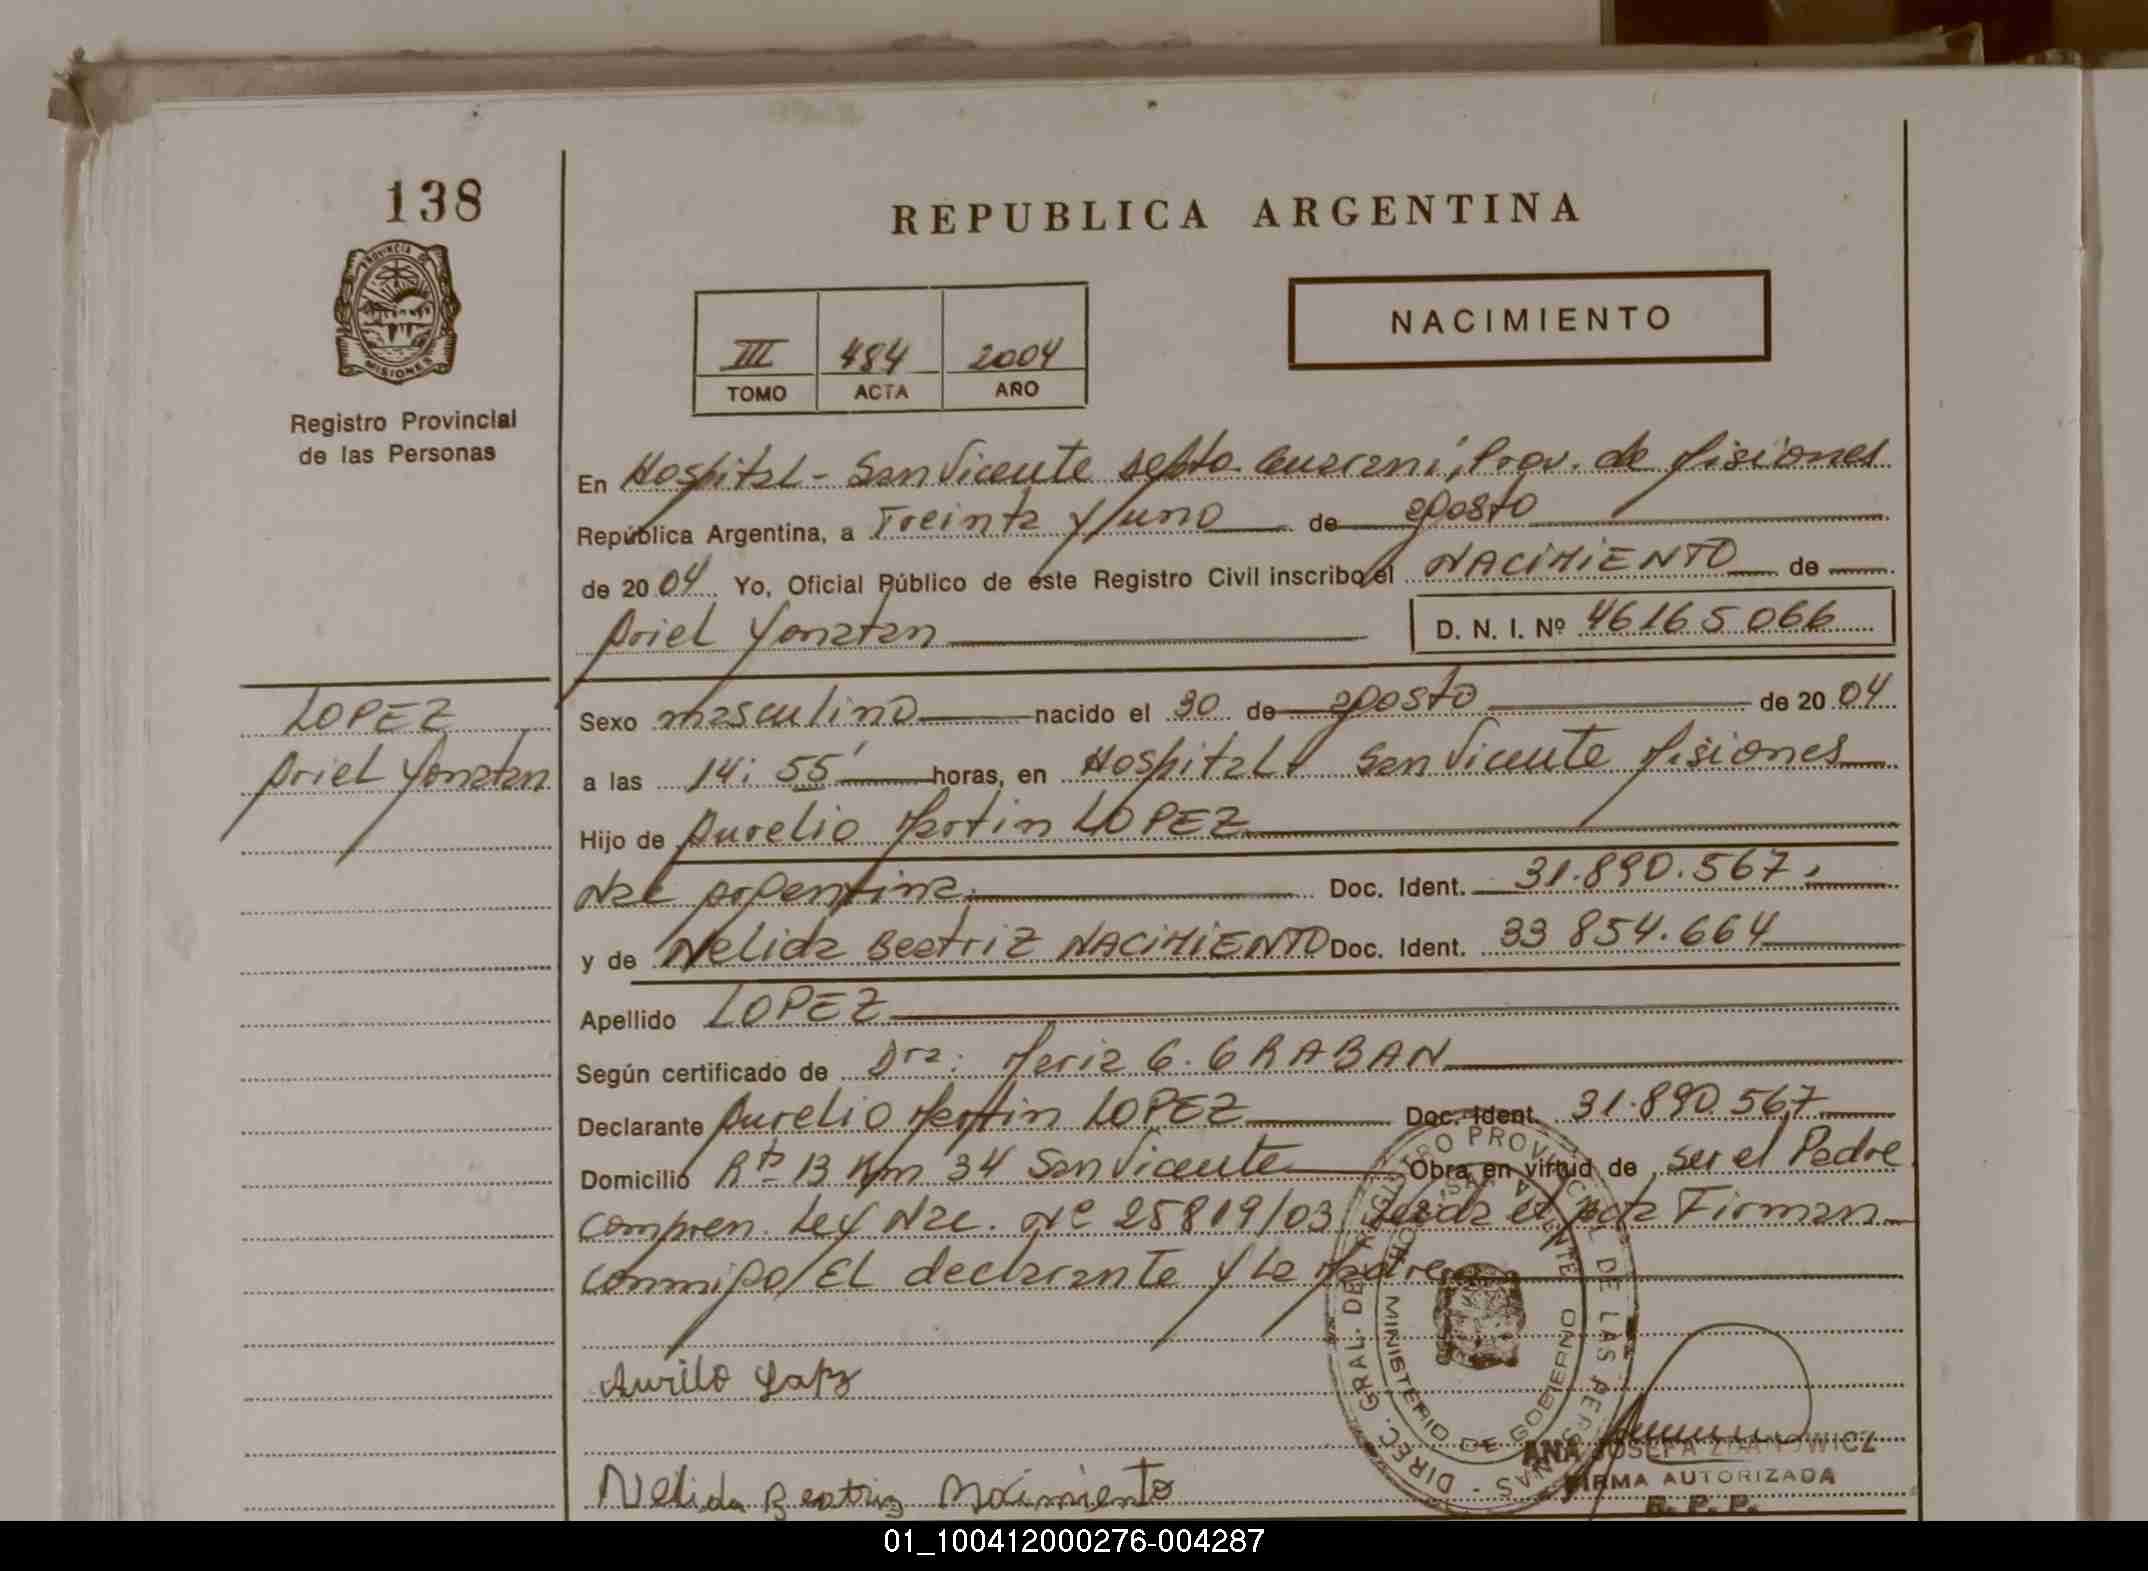 138
PROVINCIA DE
MISIONES
Registro Provincial
de las Personas
REPUBLICA ARGENTINA
III 484 2004
TOMO ACTA AÑO
NACIMIENTO
En Hospital - San Vicente Depto Guarani, Prov. de Misiones
República Argentina, a Treinta y uno de agosto
de 2004 Yo, Oficial Público de este Registro Civil inscribo el NACIMIENTO de
Ariel Yonatan
D. N. I. Nº 46165066
LOPEZ
Ariel Yonatan
Sexo masculino nacido el 30 de agosto de 2004
a las 14: 55' horas, en Hospital - San Vicente Misiones
Hijo de Aurelio Martin LOPEZ
Nac Argentina. Doc. Ident. 31.890.567.
y de Nelida Beatriz NACIMIENTO Doc. Ident. 33 854.664
Apellido LOPEZ
Según certificado de Dra: Maria G. GRABAN
Declarante Aurelio Martin LOPEZ Doc. Ident. 31.890 567
Domicilio Rta 13 Km 34 San Vicente Obra en virtud de ser el Padre
Compren. Ley Nac. Nº 25819/03 Leida el Acta Firman
conmigo EL declarante y La Madre
DIREC. GRAL. DEL REGISTRO PROVINCIAL DE LAS PERSONAS -
SAN VICENTE
MINISTERIO DE GOBIERNO
Nelida Beatriz Nacimiento
ANA JOSEFA ZDANOWICZ
FIRMA AUTORIZADA
R. P. P.
01_100412000276-004287